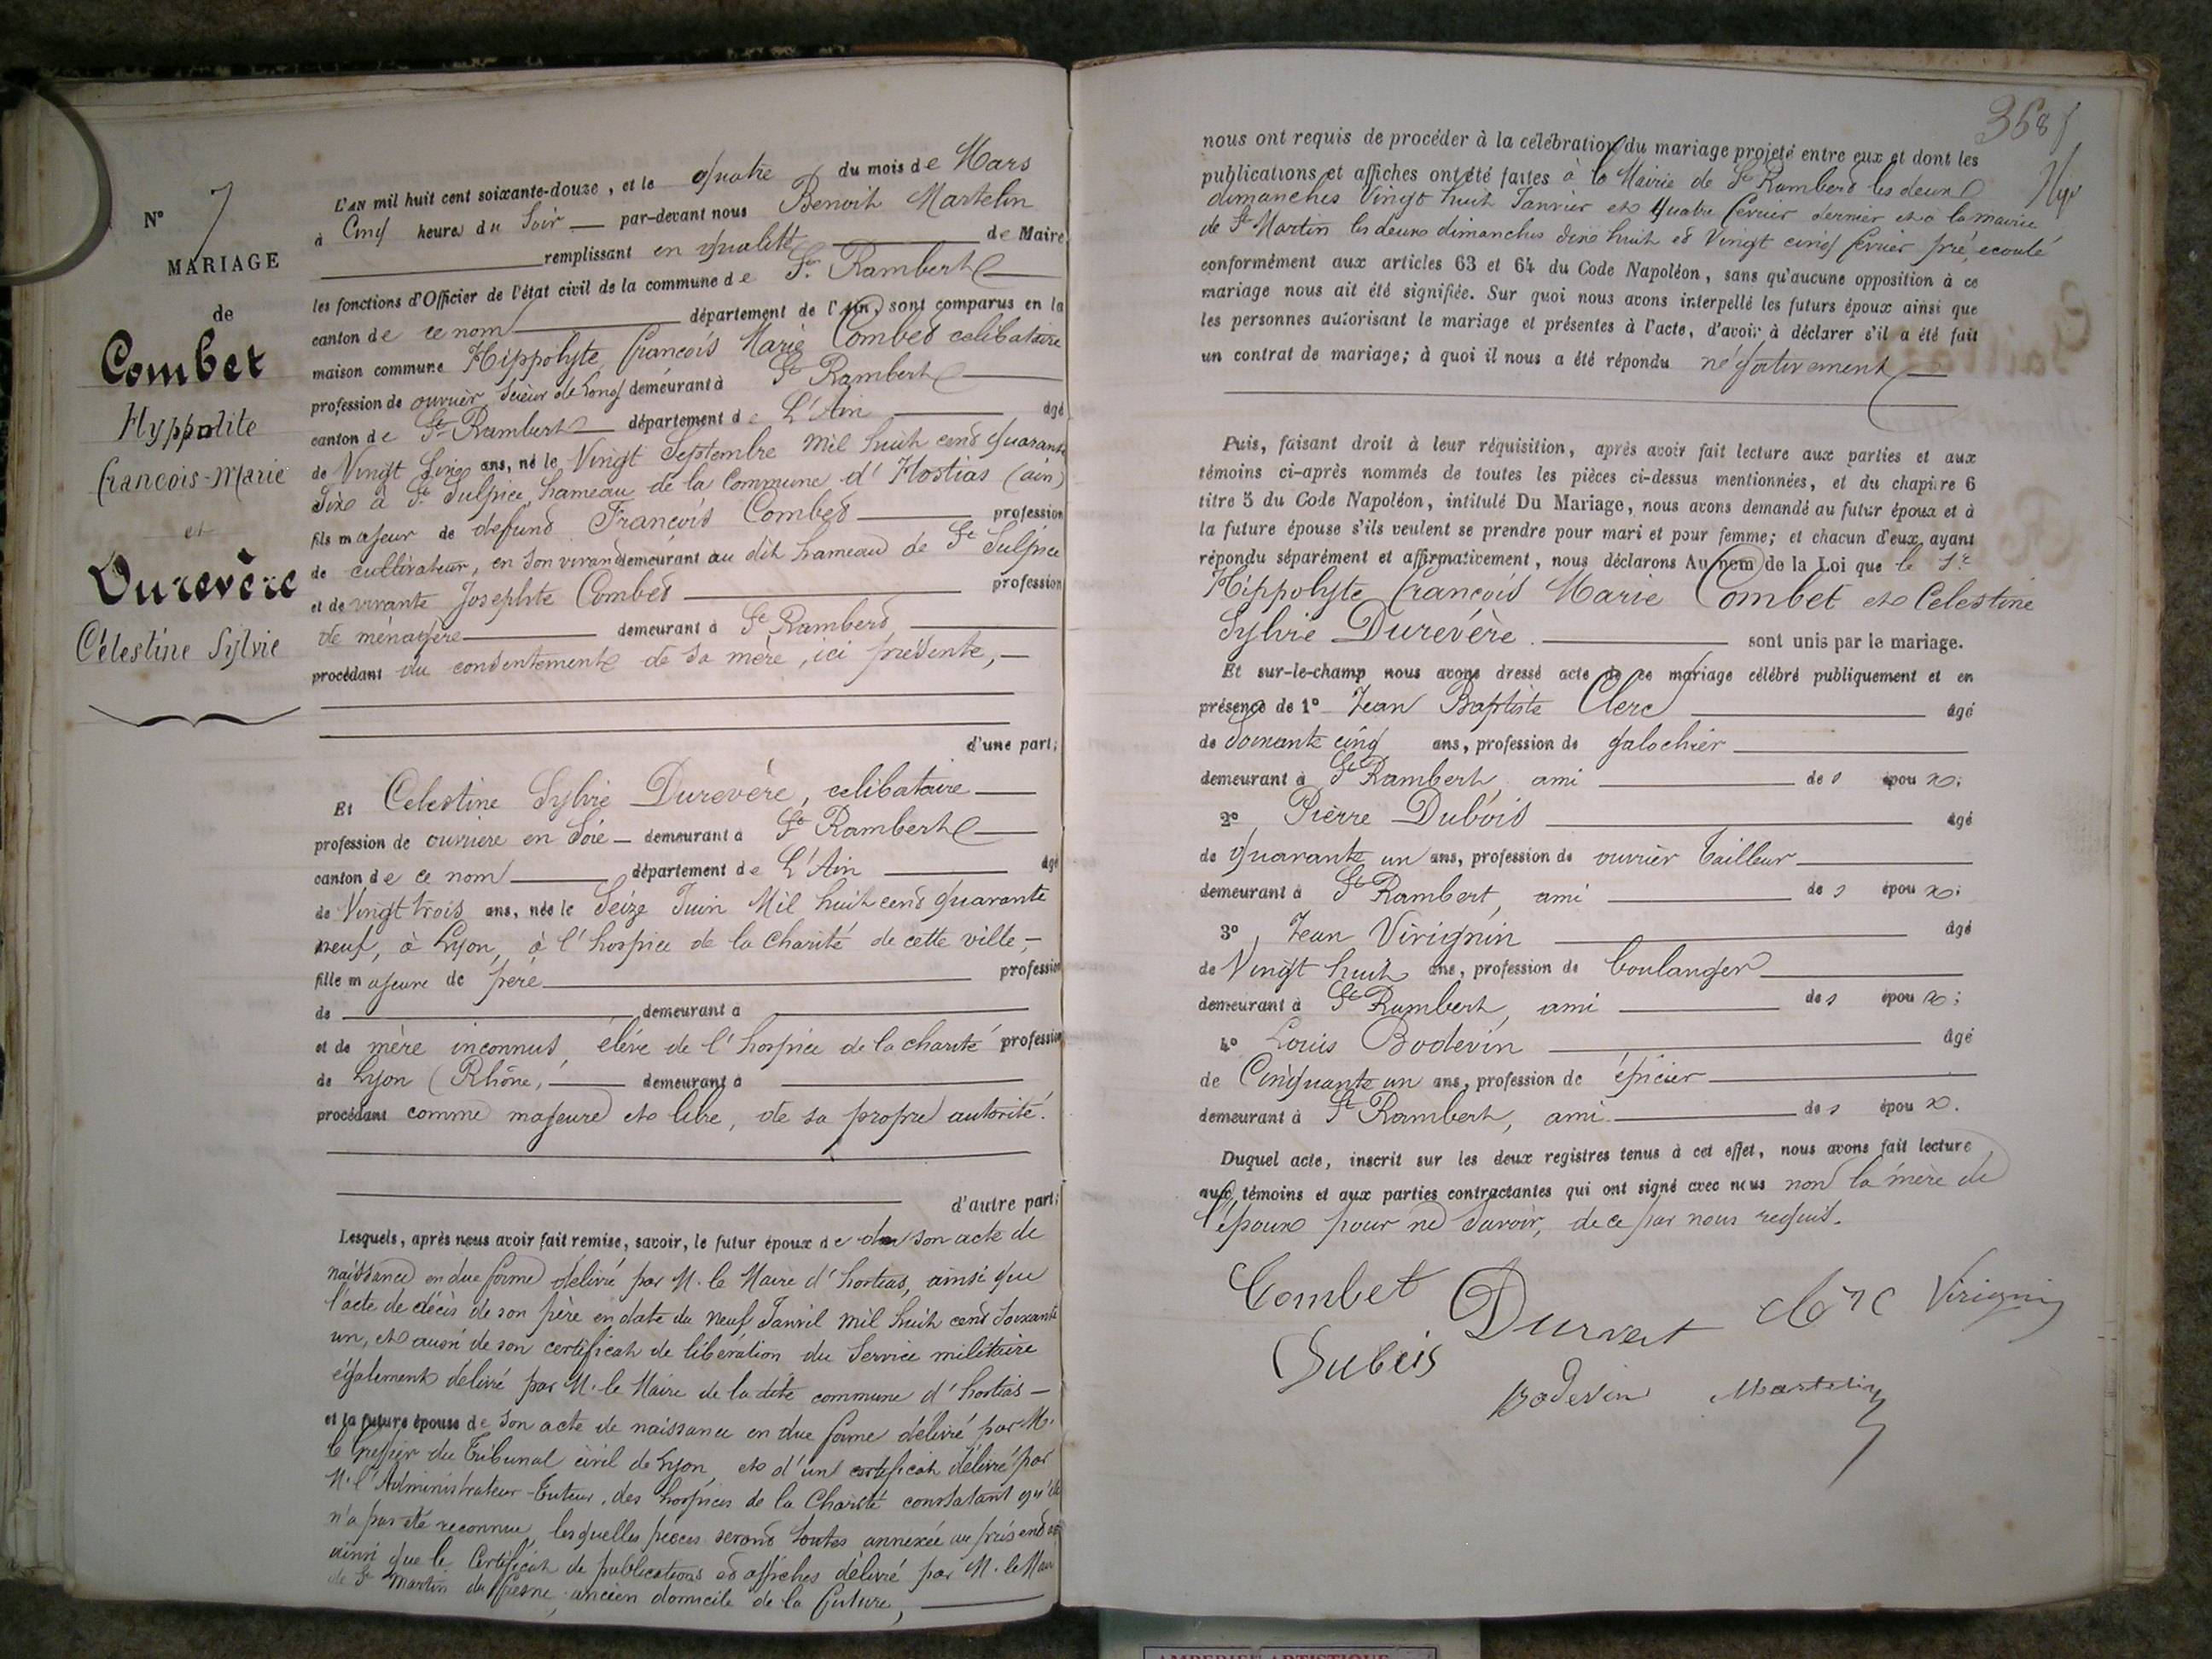 N° 7
MARIAGE
de
Combet
Hyppolite
francois-Marie
et
Durevère
Célestine Sylvie
L'AN mil huit cent soixante-douze, et le quatre du mois de Mars
à Cinq heures du Soir par-devant nous Benoit Martelin
remplissant en qualité de Maire
les fonctions d'Officier de l'état civil de la commune de St. Rambert
canton de ce nom département de l'Ain, sont comparus en la
maison commune Hippolyte françois Marie Combet celibataire
profession de ouvrier Scieur de long demeurant à St Rambert
canton de St Rambert département de L'Ain âgé
de Vingt Cinq ans, né le Vingt Septembre mil huit cent quarante
Six à St Sulpice, hameau de la Commune d'Hostias (ain)
fils majeur de defunt François Combet profession
de cultivateur, en son vivant demeurant au dit hameau de St Sulpice
et de vivante Josephte Combet profession
de ménagère demeurant à St Rambert
procédant du consentement de sa mère, ici présente,
d'une part;
Et Celestine Sylvie Durevère, celibataire
profession de ouvriere en Soie demeurant à St Rambert
canton de ce nom département de L'Ain âgé
de Vingt trois ans, née le Seize Juin Mil huit cent quarante
neuf, à Lyon, à l'hospice de la Charité de cette ville,
fille majeure de père profession
de demeurant à
et de mère inconnus, élève de l'hospice de la charité profession
de Lyon (Rhône, demeurant à
procédant comme majeure et libre, de sa propre autorité.
d'autre part;
Lesquels, après nous avoir fait remise, savoir, le futur époux de son acte de
naissance en due forme délivré par M. le Maire d'hostias, ainsi que
l'acte de décès de son père en date du neuf Janvil mil huit cent soixante
un, et aussi de son certificat de libération du Service militaire
également délivré par M. le Maire de la dite commune d'hostias
et la future épouse de son acte de naissance en due forme délivré par M.
le Greffier du Tribunal civil de Lyon, et d'un certificat délivré par
M. l'Administrateur-Tuteur, des hospices de la Charité constatant qu'elle
n'a pas été reconnue, lesquelles pièces seront toutes annexée au présent
ainsi que le Certificat de publications et affiches délivré par M. le Maire
de St Martin du fresne, ancien domicile de la future,
368
nous ont requis de procéder à la célébration du mariage projeté entre eux et dont les
publications et affiches ont été faites à la Mairie de St Rambert les deux
dimanches Vingt huit Janvier et quatre février dernier et à la mairie
de St Martin les deux dimanches dix huit et Vingt cinq février pré, ecoulé
conformément aux articles 63 et 64 du Code Napoléon, sans qu'aucune opposition à ce
mariage nous ait été signifiée. Sur quoi nous avons interpellé les futurs époux ainsi que
les personnes autorisant le mariage et présentes à l'acte, d'avoir à déclarer s'il a été fait
un contrat de mariage; à quoi il nous a été répondu négativement
Puis, faisant droit à leur réquisition, après avoir fait lecture aux parties et aux
témoins ci-après nommés de toutes les pièces ci-dessus mentionnées, et du chapitre 6
titre 5 du Code Napoléon, intitulé Du Mariage, nous avons demandé au futur époux et à
la future épouse s'ils veulent se prendre pour mari et pour femme; et chacun d'eux ayant
répondu séparément et affirmativement, nous déclarons Au nom de la Loi que le Sr
Hippolyte françois Marie Combet et Celestine
Sylvie Durevère. sont unis par le mariage.
Et sur-le-champ nous avons dressé acte de ce mariage célébré publiquement et en
présence de 1° Jean Baptiste Clerc âgé
de Soixante cinq ans, profession de galochier
demeurant à St Rambert, ami des époux;
2° Pierre Dubois âgé
de quarante un ans, profession de ouvrier tailleur
demeurant à St Rambert, ami des époux;
3° Jean Virignin âgé
de Vingt huit ans, profession de boulanger
demeurant à St Rambert, ami des époux;
4° Louis Bodevin âgé
de Cinquante un ans, profession de épicier
demeurant à St Rambert, ami des époux.
Duquel acte, inscrit sur les deux registres tenus à cet effet, nous avons fait lecture
aux témoins et aux parties contractantes qui ont signé avec nous non la mère de
l'époux pour ne Savoir, de ce par nous requis.
Combet Durvert Clerc Virignin
Dubois
Bodevin Martelin